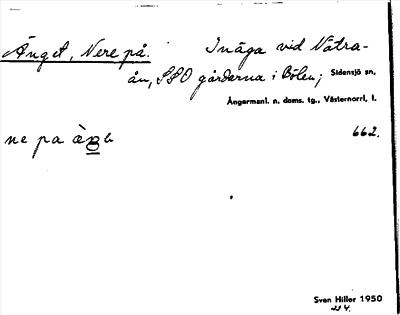 Änget, Nere på. Inäga vid Nätra-
ån, SSO gårderna i Bölen; Sidensjö sn,
Ångermanl. n. doms. tg., Västernorrl, l.
ne pa 662.
Sven Hiller 1950